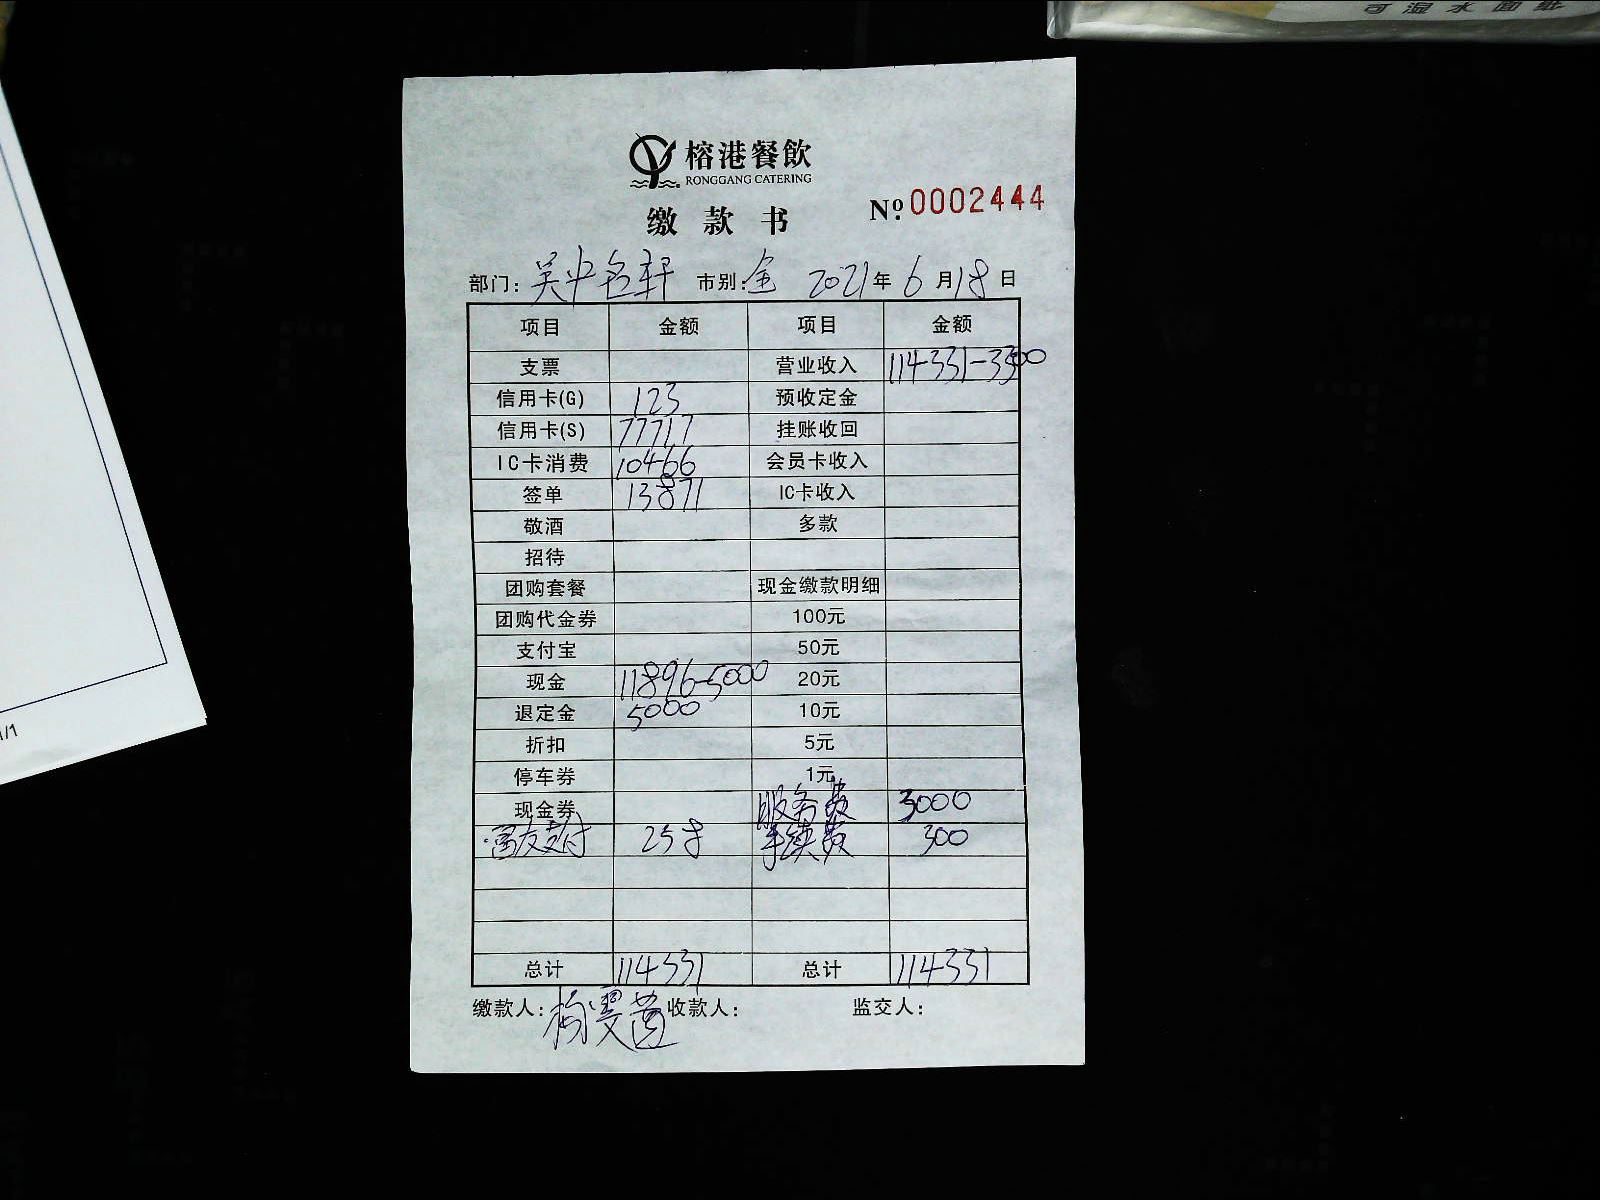 可湿水面纸
榕港餐飲
RONGGANG CATERING
缴款书 №.0002444
部门: 吴中名轩 市别: 全 2021年6月18日
项目 金额 项目 金额
支票 营业收入 114331-3300
信用卡(G) 123 预收定金
信用卡(S) 77717 挂账收回
IC卡消费 10466 会员卡收入
签单 13871 IC卡收入
敬酒 多款
招待
团购套餐 现金缴款明细
团购代金券 100元
支付宝 50元
现金 11896-5000 20元
退定金 5000 10元
折扣 5元
停车券 1元
现金券 服务费 3000
支付 258 手续费 300
总计 114331 总计 114331
缴款人: 收款人: 监交人:
1/1